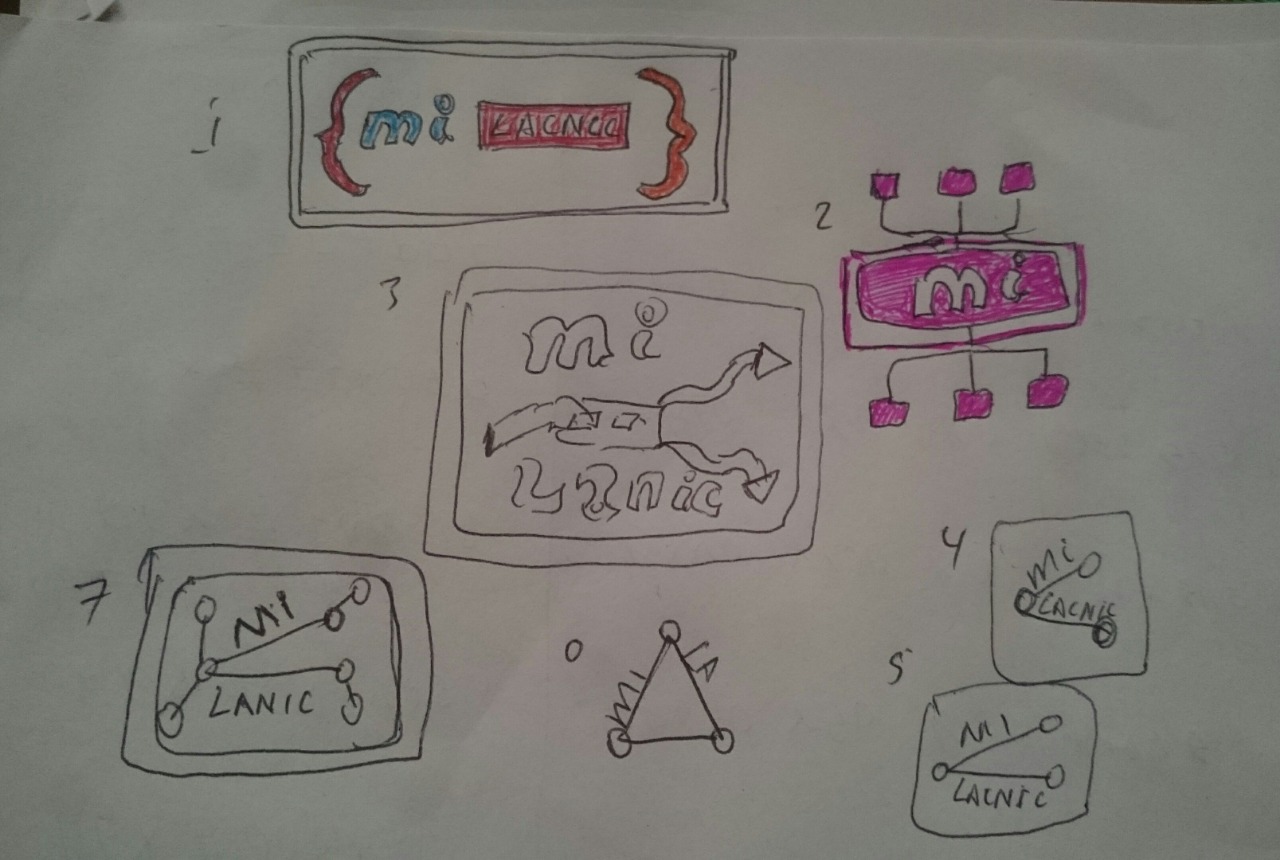 1
mi LACNIC
2
mi
3
mi
4
mi
LACNIC
5
MI
LACNIC
7
MI
LANIC
0
MI LA